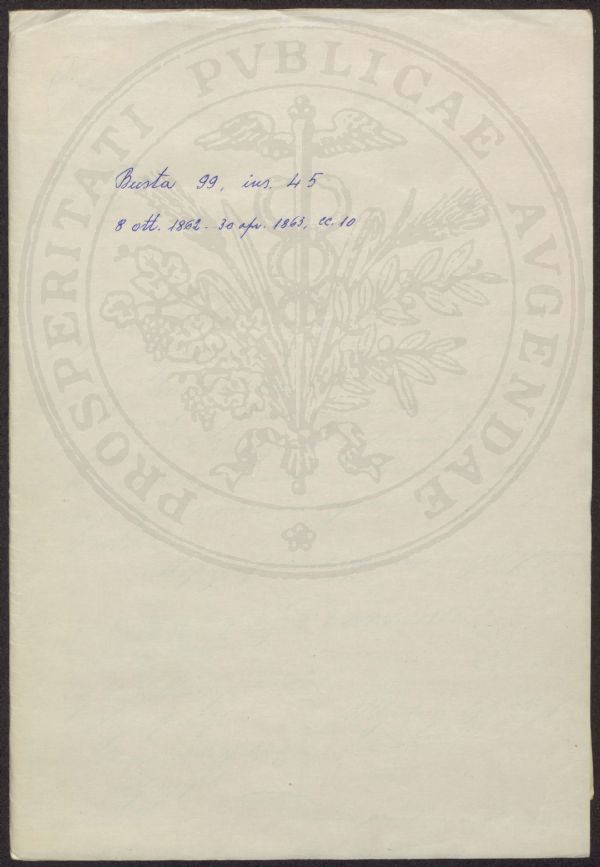 PROSPERITATI PVBLICAE AVGENDAE
Busta 99, ins. 45
8 ott. 1862 - 30 apr. 1863, cc. 10